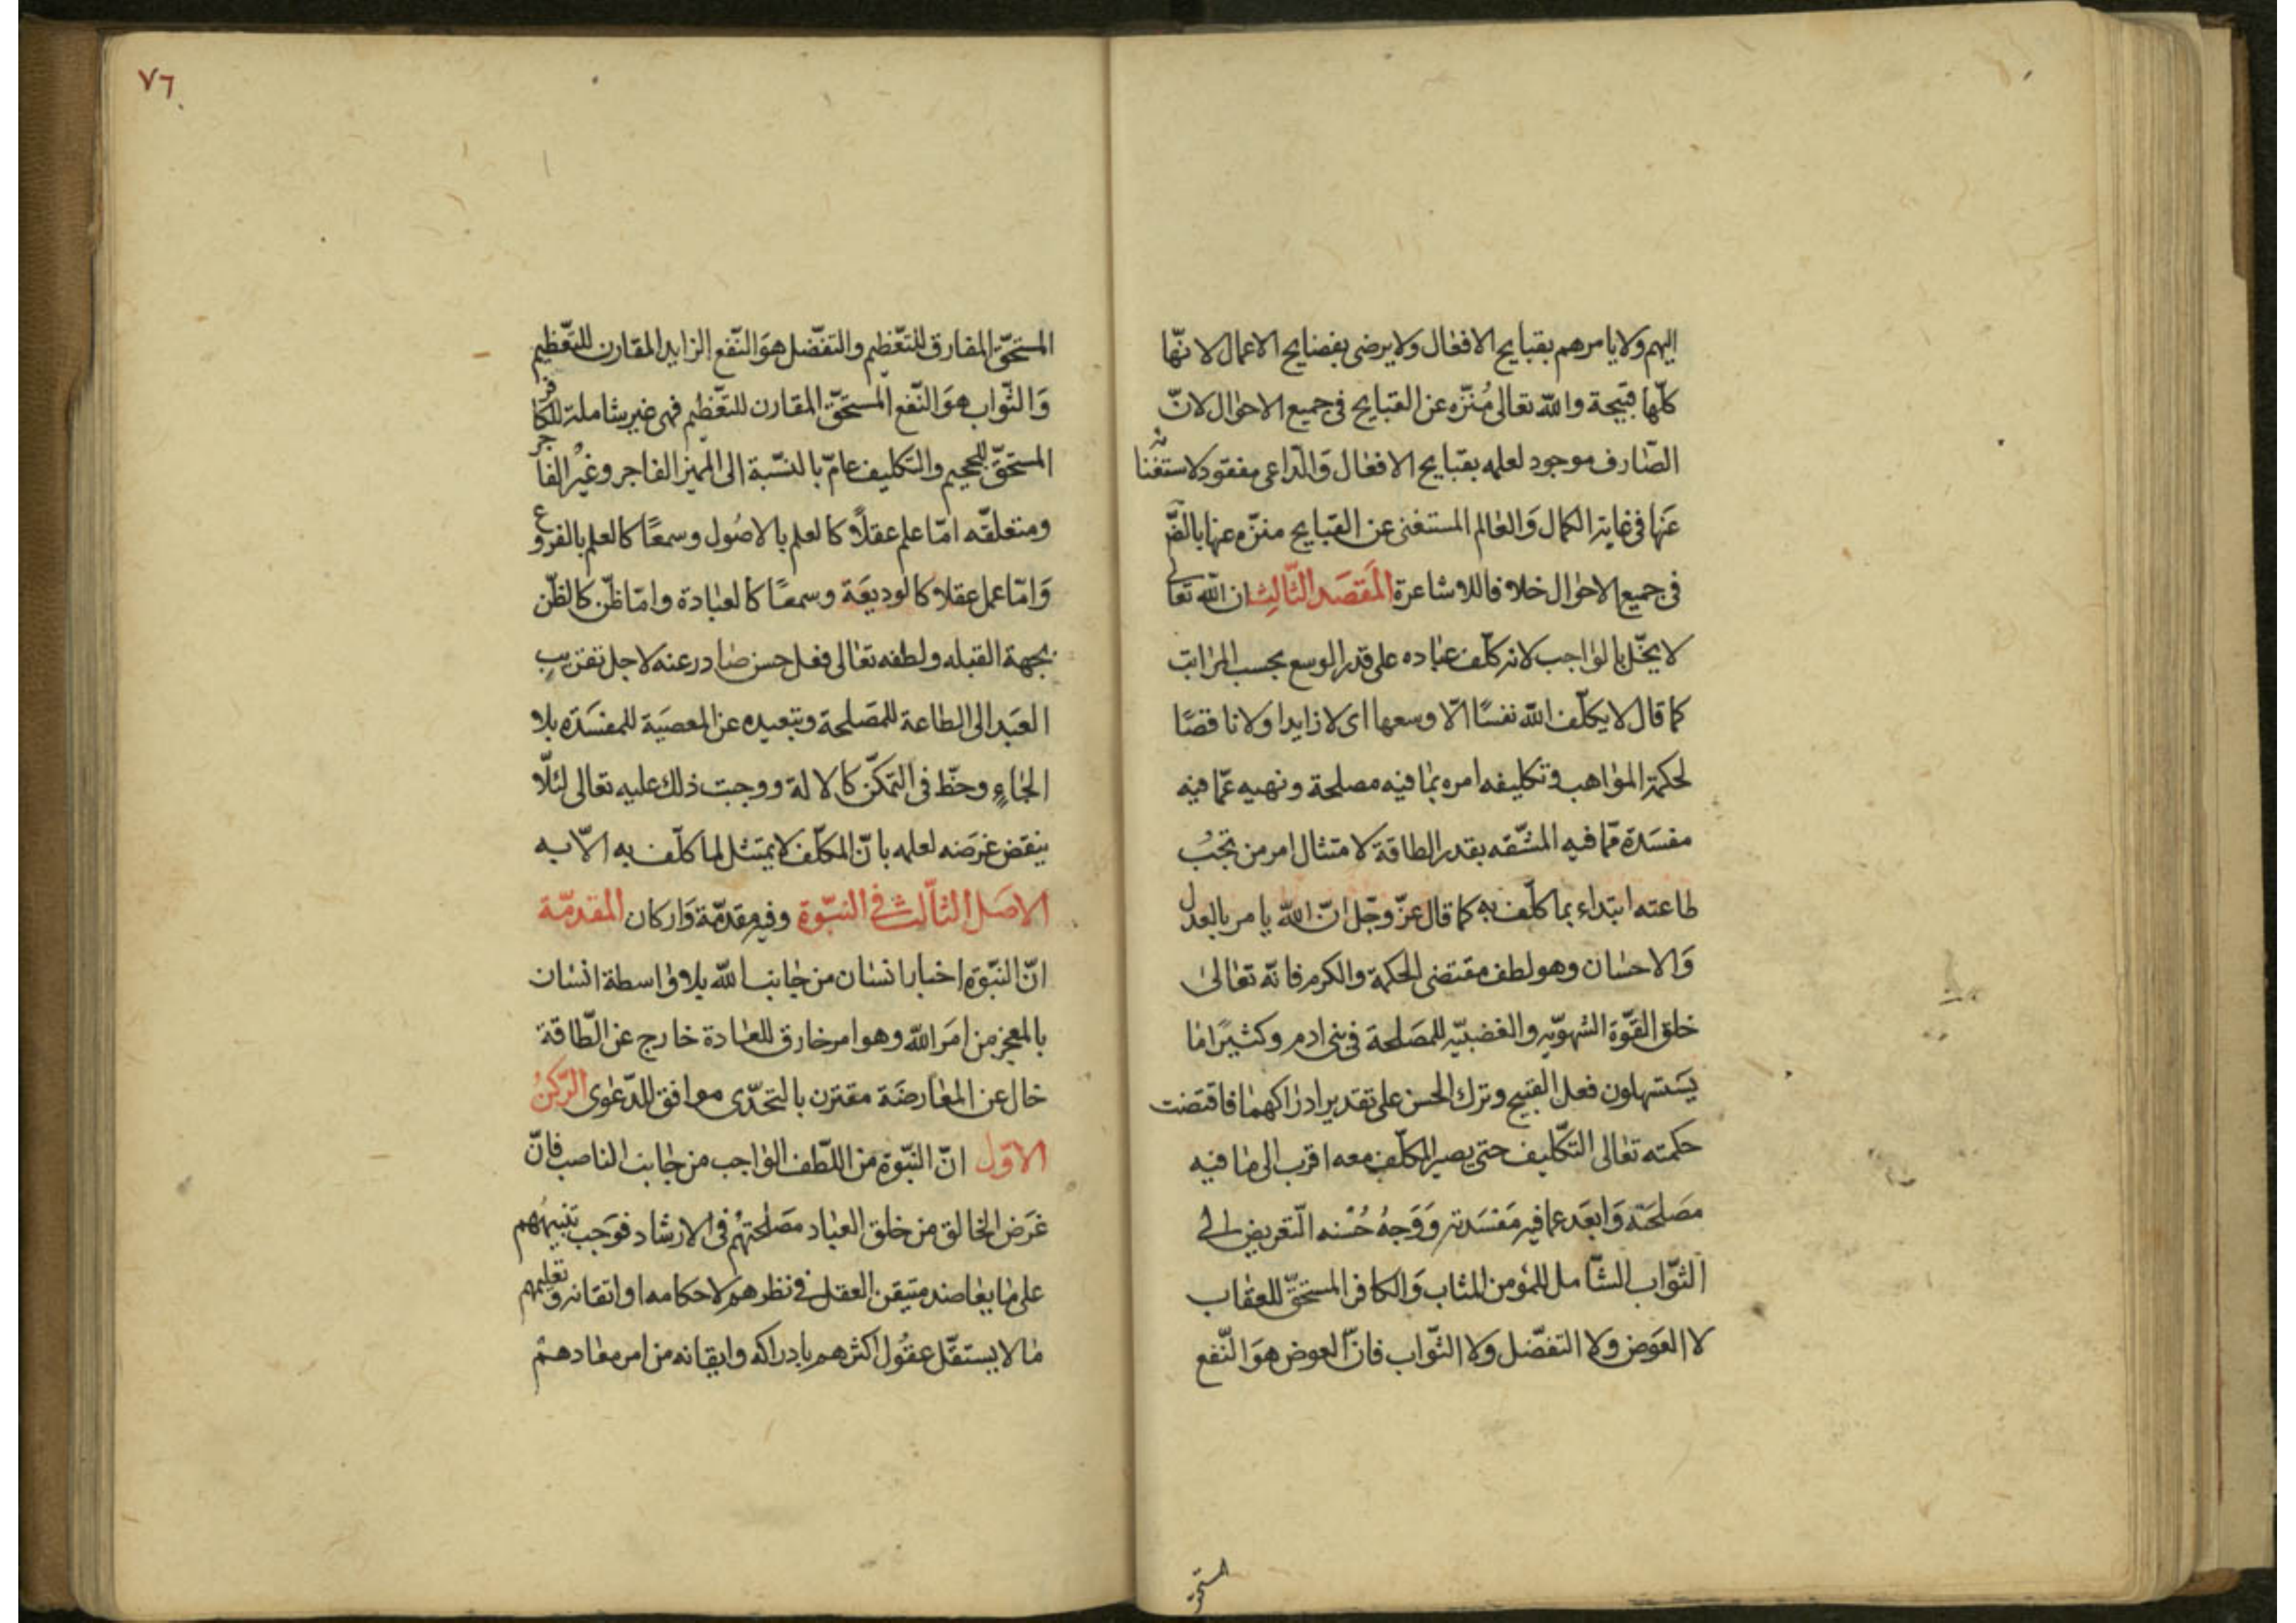 اليهم ولا يامرهم بقبايح الافعال ولا يرضى بفضايح الاعمال لانّها
كلّها قبيحة والله تعالى مُنزّه عن القبايح فى جميع الاحوال لانّ
الصّارف موجود لعلمه بقبايح الافعال وَالدّاعى مفقود لاستغنائه
عَنها فى غاية الكمال وَالعالم المستغنى عن القبايح منزّه عنها بالضّر
فى جميع الاحوال خلافا للاشاعرة المَقصَد الثّالِث ان الله تعالى
لا يخلّ بالواجب لانه كلّف عباده على قدر الوسع بحسب المراتب
كما قال لا يكلّف الله نفسًا الّا وسعها اى لا زايدا ولا ناقصًا
لحكمة المواهب وتكليفه امره بما فيه مصلحة ونهيه عمّا فيه
مفسَدة ممّا فيه المشّقه بقدر الطاقة لامتثال امر من تجبُ
طاعته ابتداء بما كلّف به كما قال عزّ وجّل انّ الله يامر بالعدل
وَالاحسان وهو لطف مقتضى الحكمة والكرم فانّه تعالىٰ
خلق القوّة الشهويّه والغضبيّه للمصَلحة فى بنى ادم وكثيرًا ما
يَستسهلون فعل القبيح وترك الحسن على تقدير ادراكهما فاقتضت
حكمته تعالى التكّليف حتى يصير المكلّف معه اقرب الى ما فيه
مصَلحَته وَابعَد عما فيه مَفسَدته وَوَجهُ حُسْنه التّعريض الى
الثوّاب الشّامل للمؤمن المثاب وَالكافر المستحقّ للعقاب
لا العَوض ولا التفضّل ولا الثّواب فانّ العوض هوَ النّفع
المستحق
٧٦
المستحقّ المفارق للتعّظيم والتفضّل هوَ النّفع الزايد المقارن للتعّظيم
وَالثّواب هوَ النّفع المستحَقّ المقارن للتعّظيم فهى غير شاملة للكافر
المستحقّ للجحيم والتكليف عامّ بالنسّبة الى المميز الفاجر وغَيْر الفاجر
ومتعلقّه امّا علم عقلاً كالعلم بالاصُول وسمعًا كالعلم بالفروع
وَامّا عمل عقلا كالوديعَة وسمعًا كالعبادة وامّا ظنّ كالظّن
بجهة القبله ولطفه تعالى فعل حسن صادر عنه لاجل تقريب
العَبد الى الطاعة للمصَلحة وتبعيده عن المعصيَة للمفسَدة بلا
الجاءٍ وحظّ فى التمكّن كالالة ووجبت ذلك عليه تعالى لئلّا
ينقض غرضه لعلمه بانّ المكلّف لا يمتثل لما كلّف به الاّ به
الاصَل الثاّلث فى النبّوة وفيه مقدمّة وَاركان المقدمّة
انّ النبّوة اخبار انسان من جانب الله بلا واسطة انسان
بالمعجز من امَر الله وهو امر خارق للعادة خارج عن الطّاقة
خال عن المعارضَة مقترن بالتحدّى موافق للدّعوٰى الرّكنُ
الاوّل انّ النبّوة من اللّطف الواجب من جانب الناصب فانّ
غرَض الخالق من خلق العباد مصَلحتهُم فى الارشاد فوَجب تنبيههم
على ما يعاضد متيقن العقل فى نظرهم لاحكامه او اتقانه وتعليمهم
ما لا يستقّل عقُول اكثرهم بادراكه وايقانه من امر معادهم